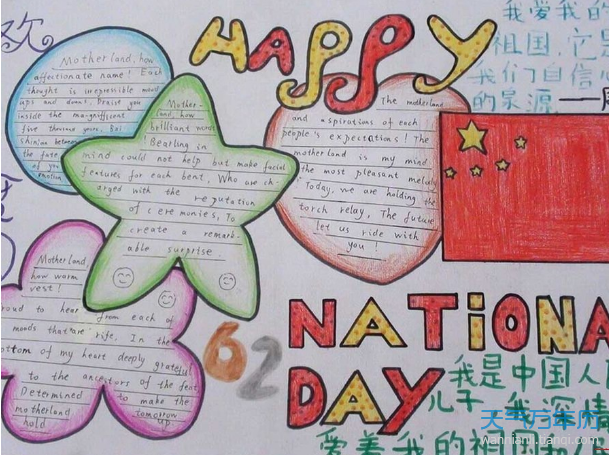 欢
HAPPY
我爱我的
祖国,它是
我们自信心
的泉源
Motherland, how
affectionate name! Each
thought is irrepressible mood
ups and downs. Praise you
inside the magnificent
five thousand years.
the fate
of you
Mother-
land, how
brilliant words
Bearling in
mind could not help but make facial
features for each bent. Who are ch-
arged with the reputation
of ceremonies, To
create a remark-
able surprise
The motherland
and aspirations of each
people's expectations! The
motherland is my mind.
the most pleasant melody
Today, we are holding the
torch relay. The future
let us ride with
you!
Motherland,
how warm
vest!
oud to hear from each of
moods that are rife. In the
ottom of my heart deeply grateful
to the ancestors of the feat
Determined to make the
motherland tomorrow
hold up
62
NATIONA
DAY
我是中国人民
儿子 我深情
爱着我的祖国和人民
天气万年历
wannianli.tianqi.com